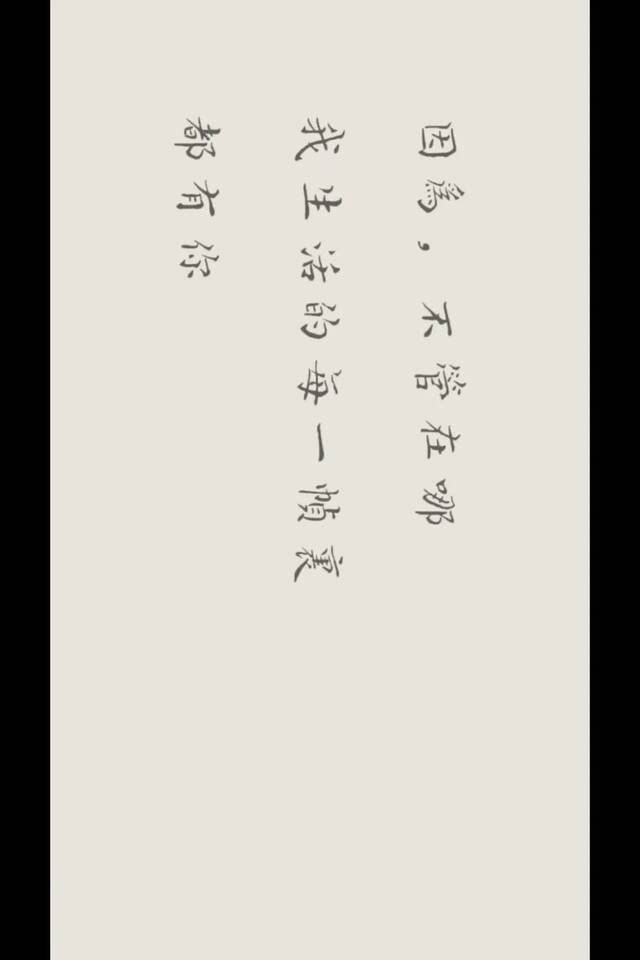 因爲，不管在哪
我生活的每一幀裏
都有你